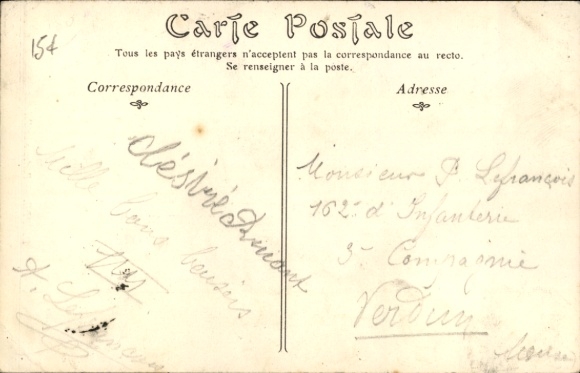 Carte Postale
15¢
Tous les pays étrangers n'acceptent pas la correspondance au recto.
Se renseigner à la poste.
Correspondance
Adresse
Mille bons baisers
Désiré Dumont
Monsieur P. Lefrançois
162e d'Infanterie
3e Compagnie
Verdun
Meuse